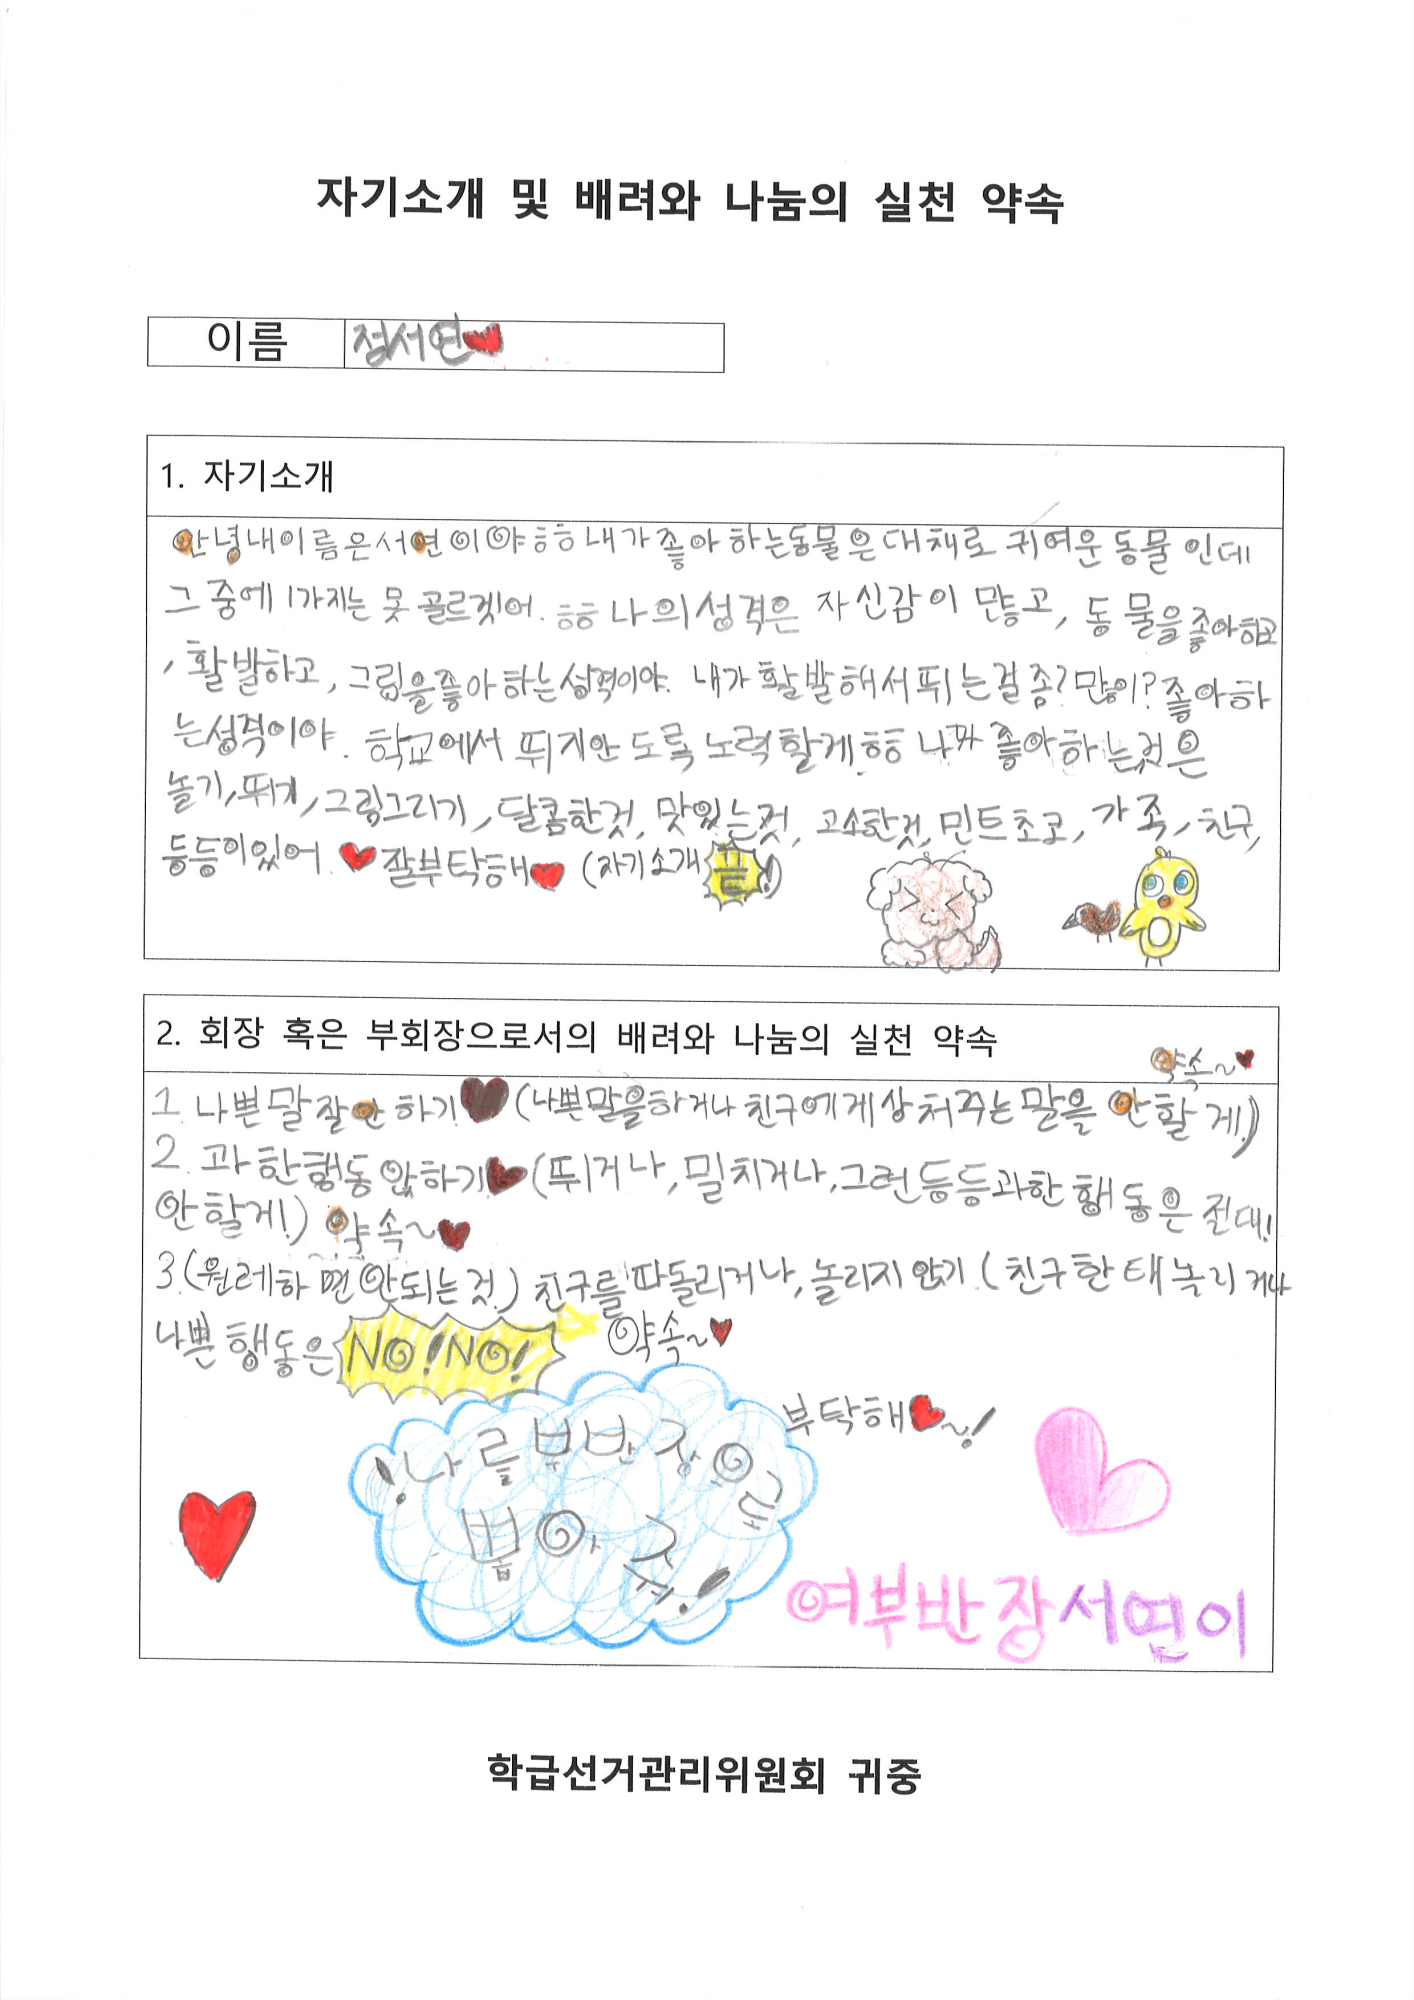 자기소개 및 배려와 나눔의 실천 약속
이름 정서연
1. 자기소개
안녕내이름은서연이야ㅎㅎ내가좋아하는동물은대채로 귀여운동물인데
그중에 1가지는 못 골르겟어. ㅎㅎ 나의성격은 자신감이 많고, 동물을좋아하고
, 활발하고, 그림을좋아하는성격이야. 내가 활발해서뛰는걸좀?많이?좋아하
는성격이야. 학교에서 뛰지안도록노력할게.ㅎㅎ 나가좋아하는것은
놀기,뛰기,그림그리기, 달콤한것, 맛있는것, 고소한것,민트초코, 가족,친구,
등등이있어. 잘부탁해 (자기소개 끝!)
2. 회장 혹은 부회장으로서의 배려와 나눔의 실천 약속
약속~
1. 나쁜말잘안하기 (나쁜말을하거나친구에게상처주는말을안할게.)
2. 과한행동않하기 (뛰거나,밀치거나,그런등등과한행동은절대!
안할게!) 약속~
3.(원레하면안되는것.) 친구를따돌리거나,놀리지않기.(친구한태놀리거나
나쁜행동은NO!NO! 약속~
부탁해~!
!나를부반장으로
뽑아줘!
여부반장서연이
학급선거관리위원회 귀중